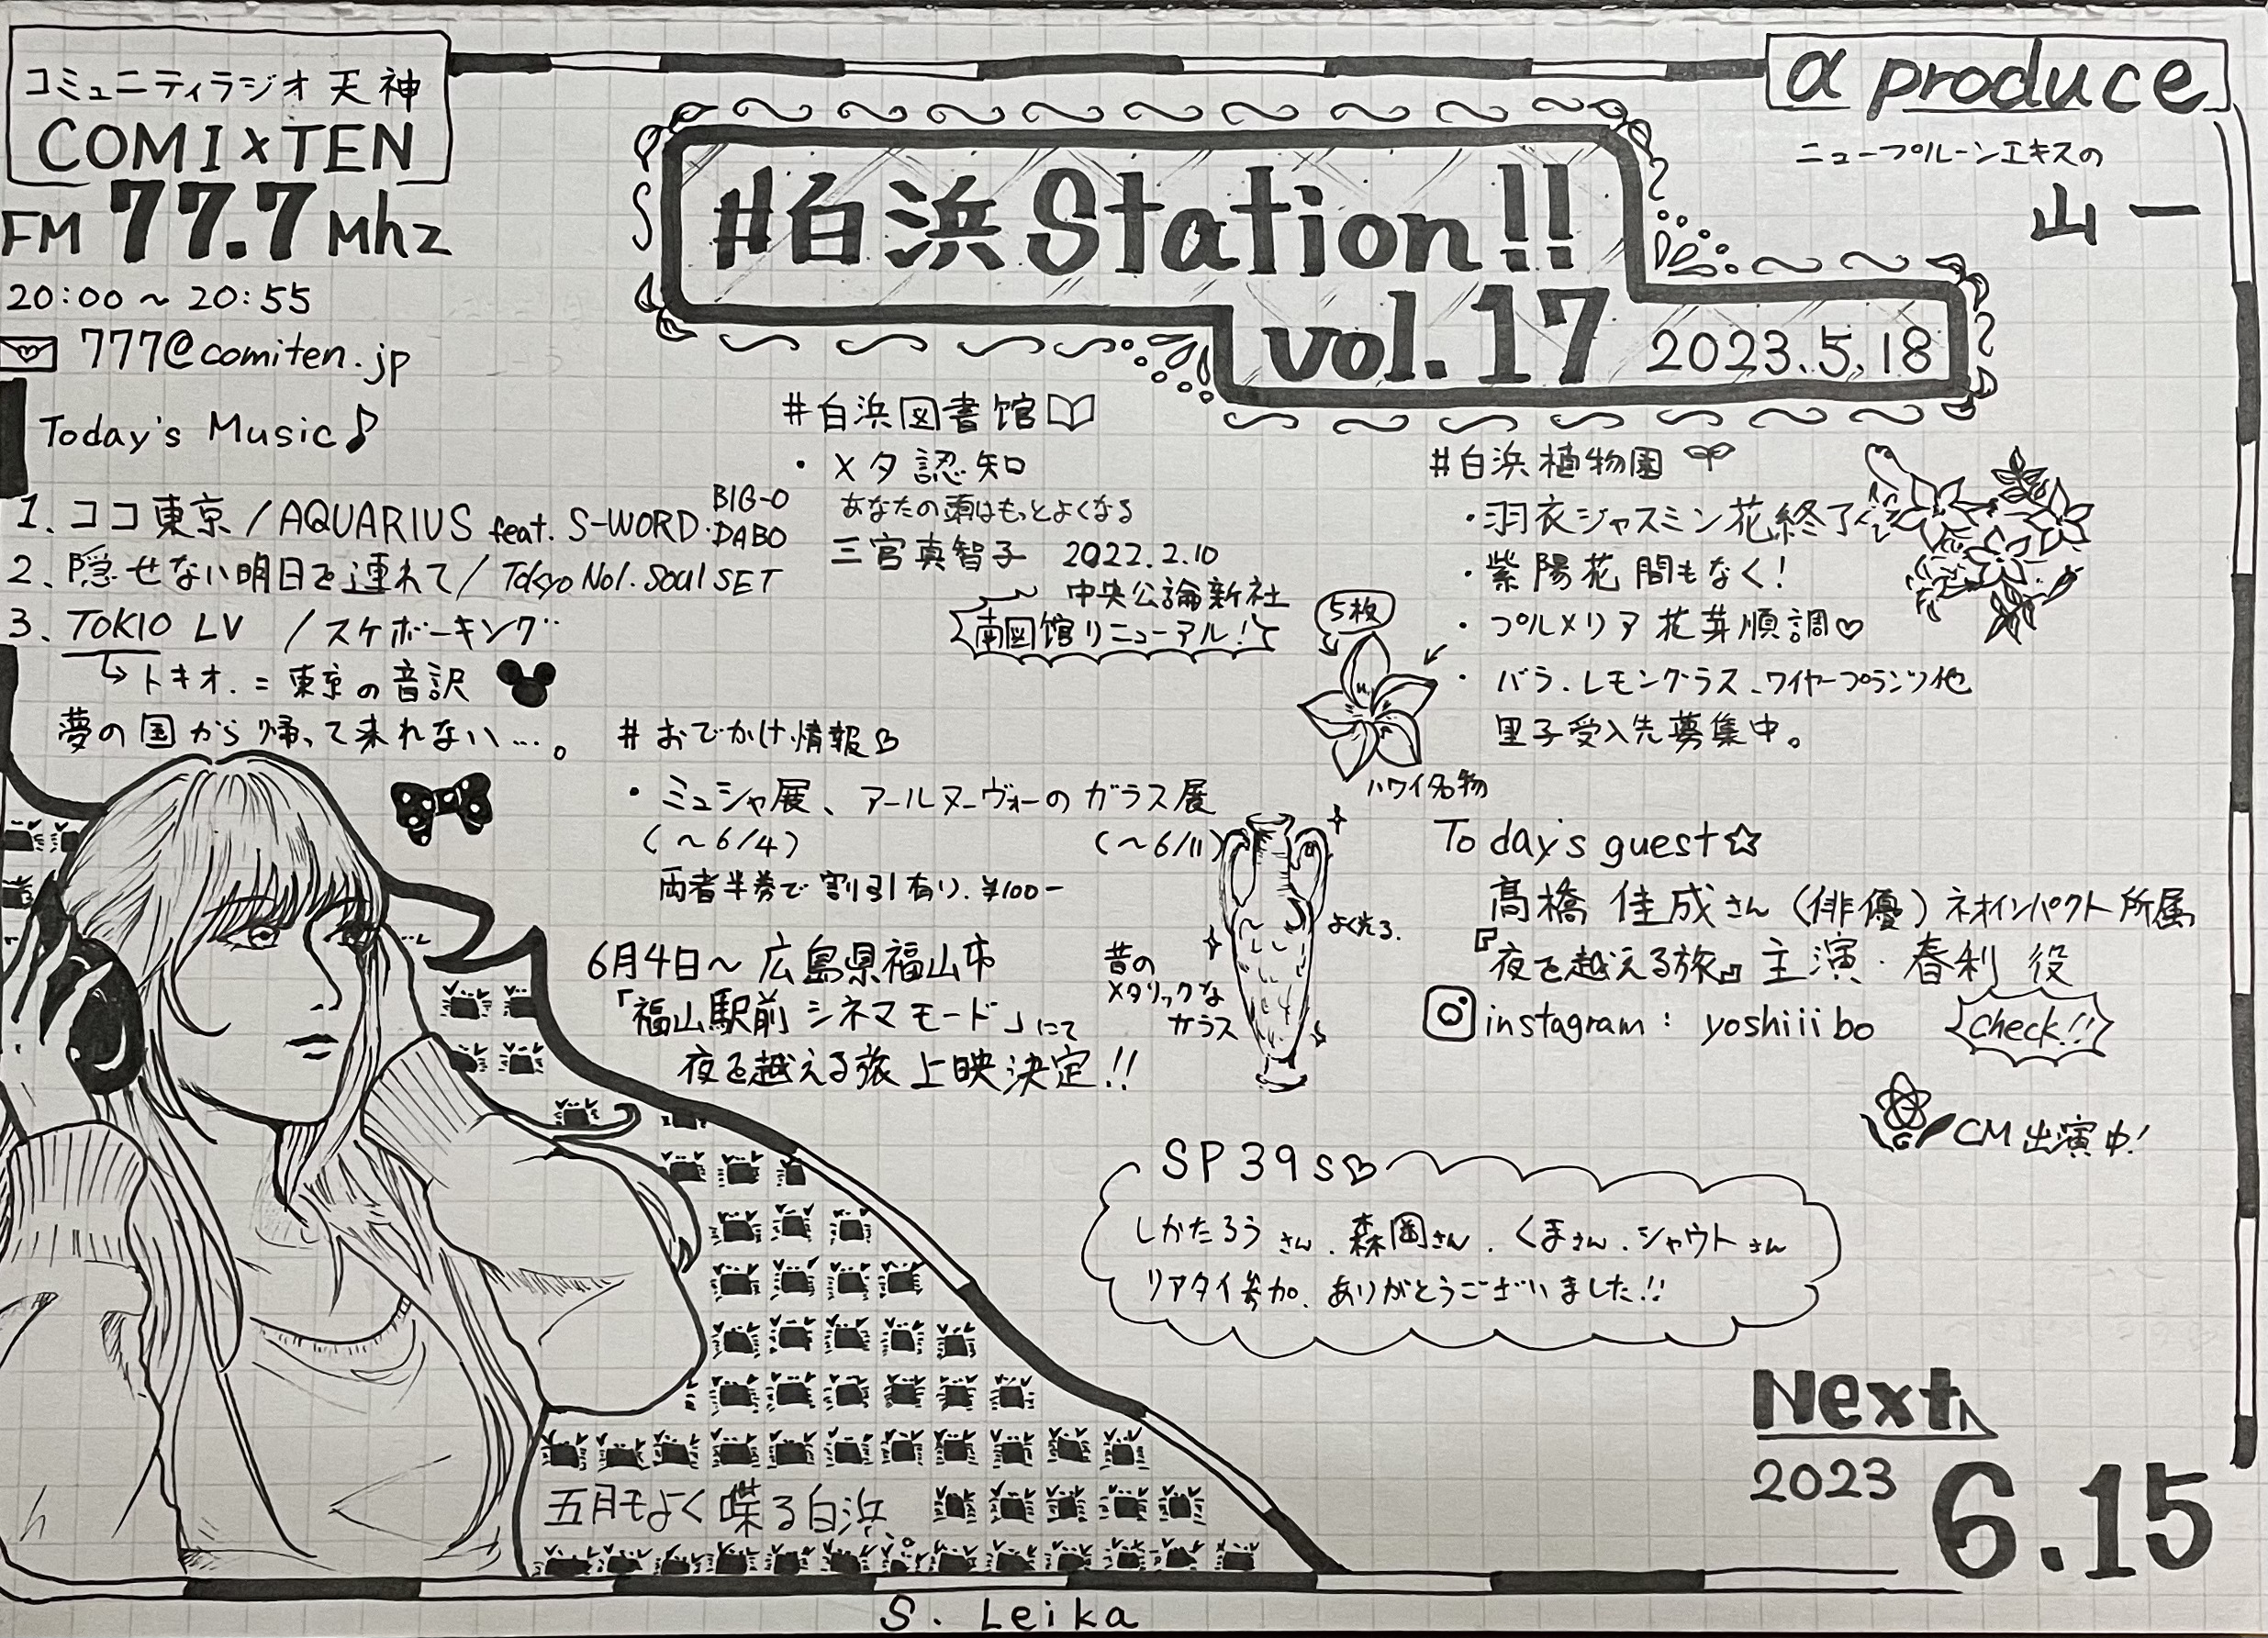 コミュニティラジオ天神
COMI×TEN
FM 77.7 Mhz
20:00～20:55
777@comiten.jp
#白浜Station!!
vol.17 2023.5.18
α produce
ニュープルーンエキスの
山一
Today's Music♪
1、ココ東京/AQUARIUS feat. S-WORD・BIG-O DABO
2、隠せない明日を連れて/Tokyo No1.Soul SET
3、TOKIO LV /スケボーキング
↳トキオ.=東京の音訳
夢の国から帰って来れない…。
#白浜図書館
・メタ認知
あなたの頭はもっとよくなる
三宮真智子 2022.2.10
中央公論新社
南図館リニューアル!
#白浜植物園
・羽衣ジャスミン花終了
・紫陽花間もなく!
・プルメリア花芽順調♡
・バラ、レモングラス、ワイヤープランツ他
里子受入先募集中。
5枚
ハワイ名物
#おでかけ情報
・ミュシャ展、アールヌーヴォーのガラス展
(～6/4) (～6/11)
両者半券で割引有り.¥100-
6月4日～広島県福山市
「福山駅前シネマモード」にて
夜を越える旅上映決定!!
昔の
メタリックな
ガラス
よく光る.
Today's guest☆
髙橋佳成さん(俳優)ネオインパクト所属
『夜を越える旅』主演・春利役
instagram: yoshiiibo check!!
G CM出演中!
SP39s♡
しかたろうさん、森園さん、くまさん、シャウトさん
リアタイ参加、ありがとうございました!!
五月もよく喋る白浜
Next
2023 6.15
S. Leika